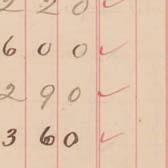 2 2 0 ✓
6 0 0 ✓
2 9 0 ✓
3 6 0 ✓